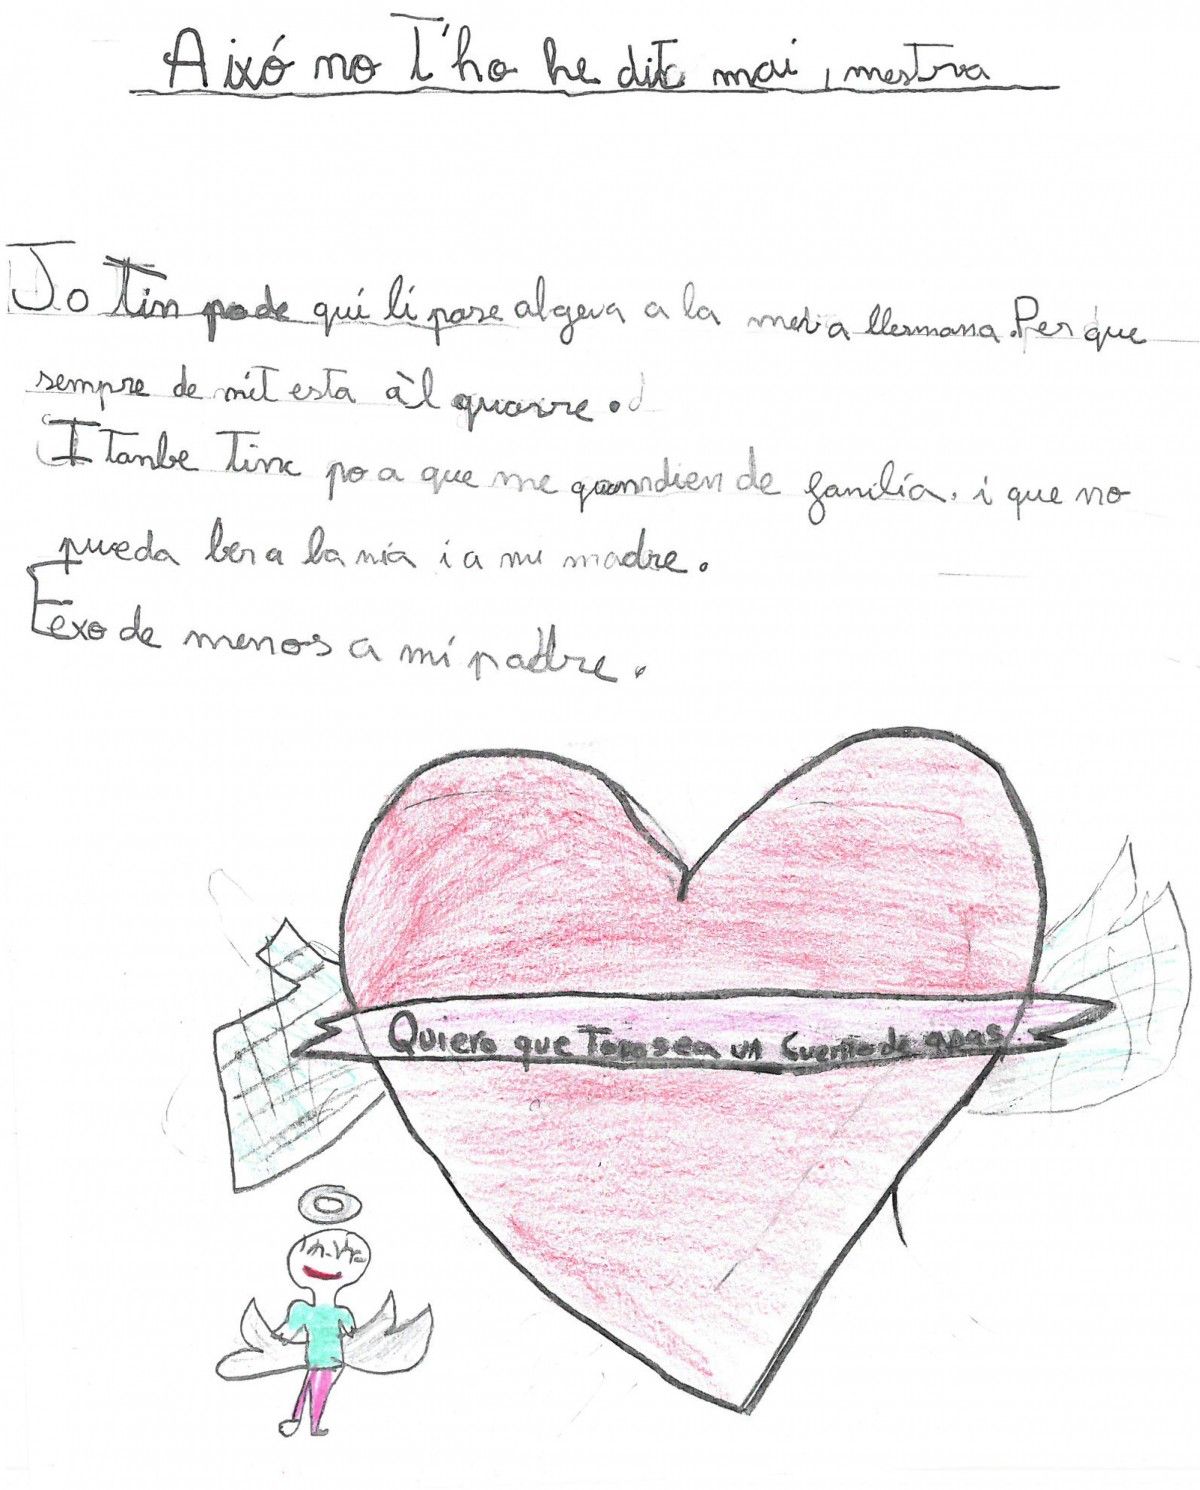 Aixó no t'ho he dita mai, mestra
Jo tin pode quí li pase algeva a la meva llermana. Per que
sempre de mit esta àl quarre.
I tanbe tinc po a que me quandien de familia. i que no
pueda ber a la nia i a mi madre.
Eexo de menos a mi padre.
Quiero que Toto sea un Cuento de adas